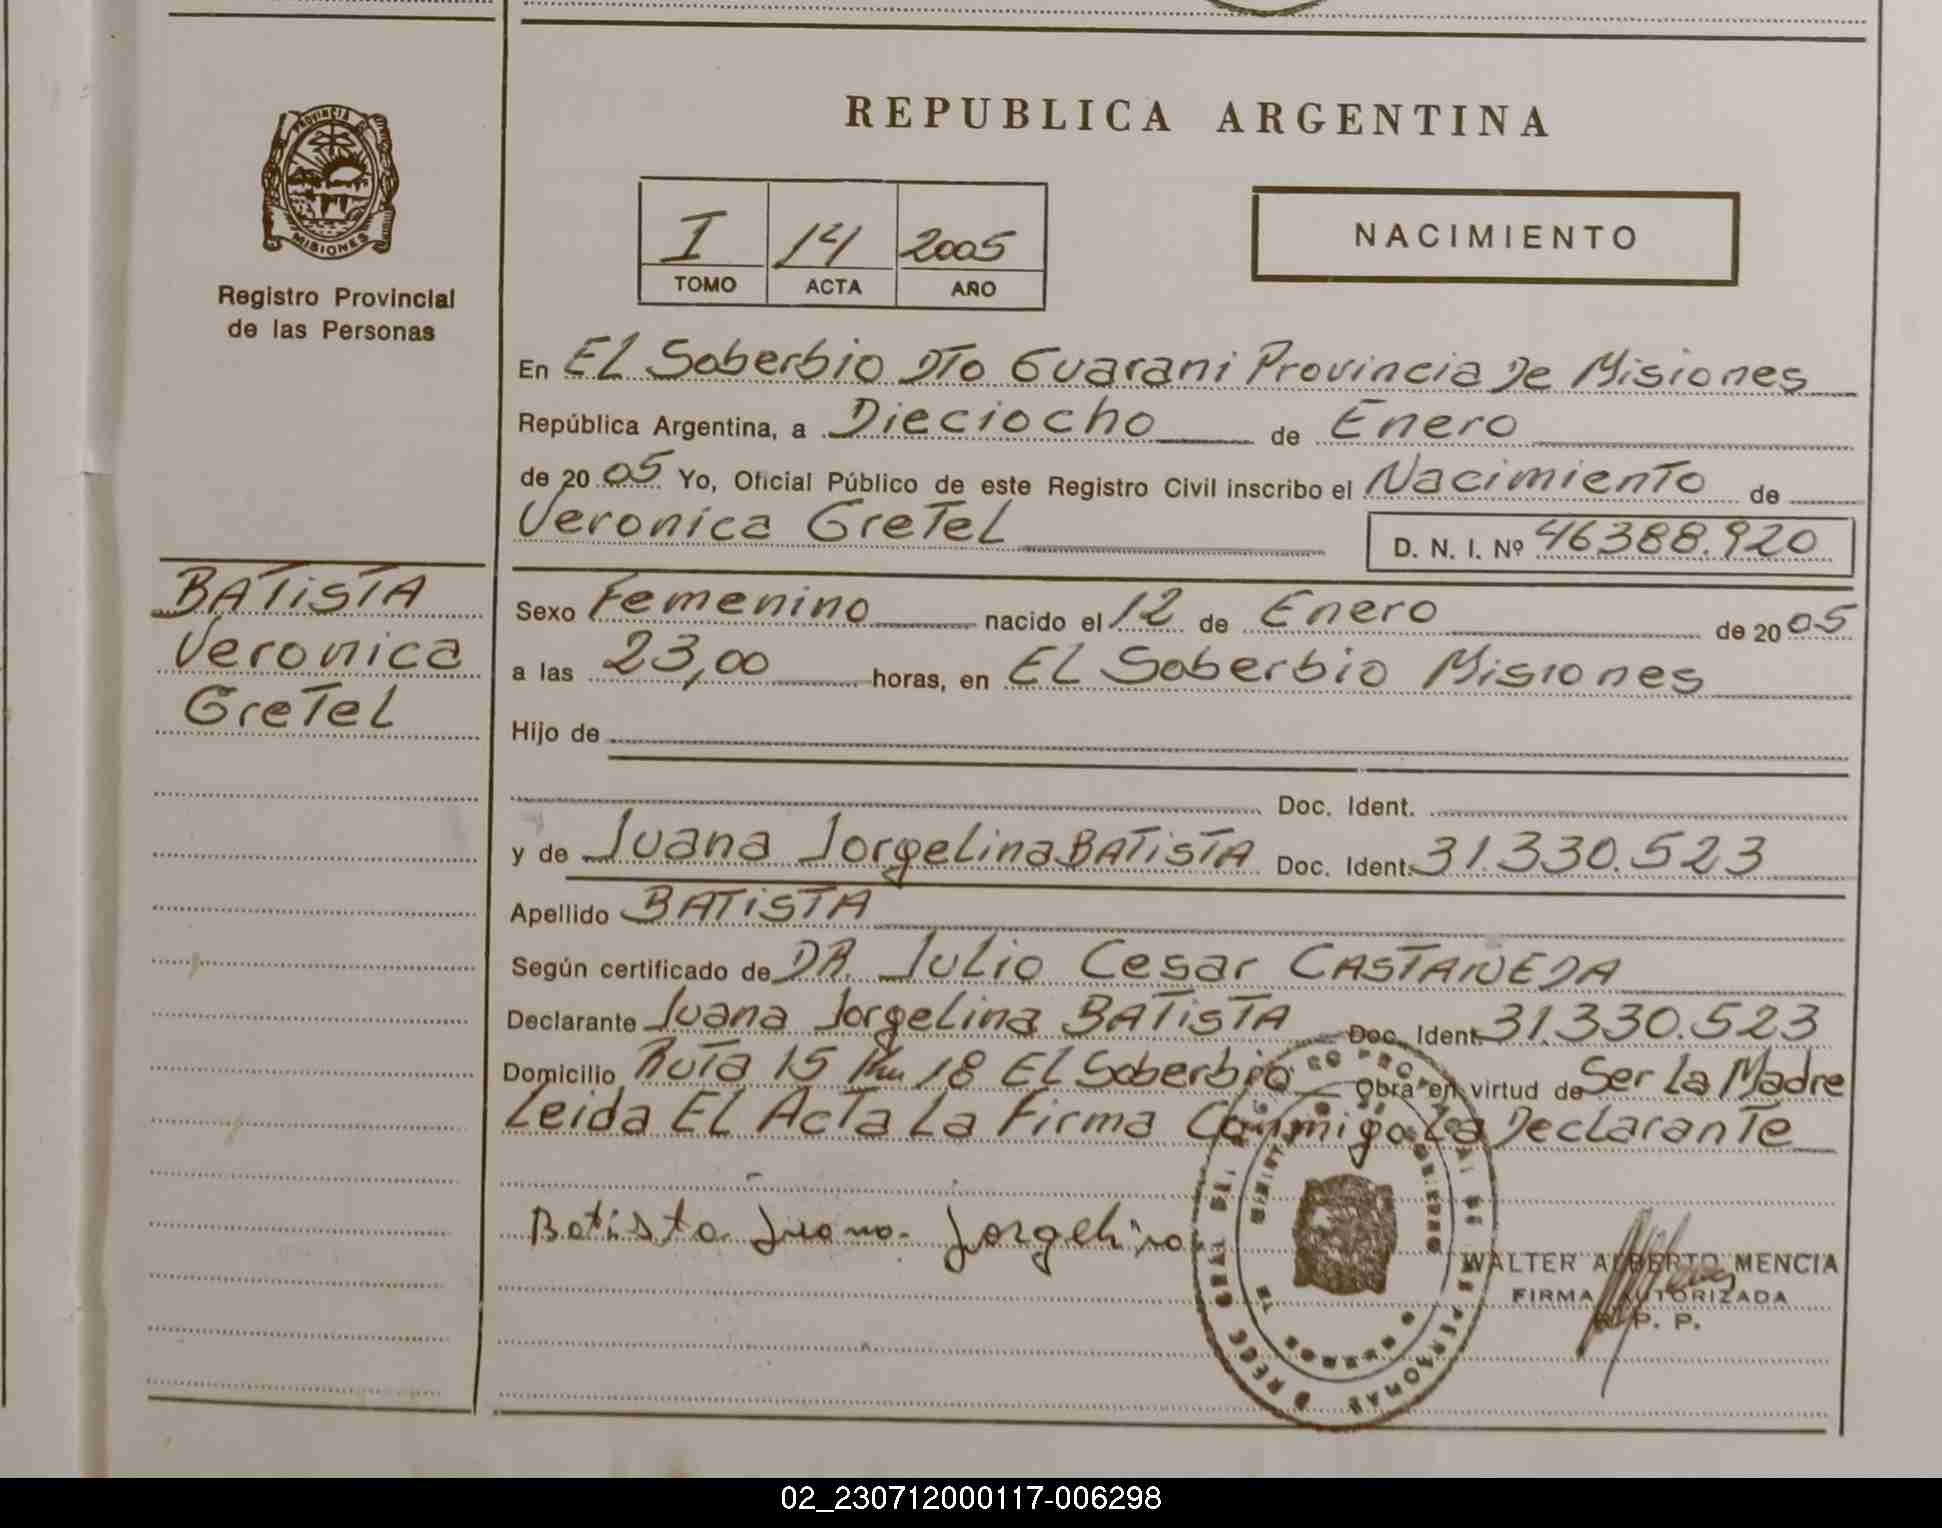 REPUBLICA ARGENTINA
PROVINCIA DE
MISIONES
Registro Provincial
de las Personas
I 14 2005
TOMO ACTA AÑO
NACIMIENTO
En EL Soberbio DTo Guarani Provincia De Misiones
República Argentina, a Dieciocho de Enero
de 2005 Yo, Oficial Público de este Registro Civil inscribo el Nacimiento de
Veronica Gretel D. N. I. Nº 46388.920
BATISTA
Veronica
Gretel
Sexo Femenino nacido el 12 de Enero de 2005
a las 23,00 horas, en EL Soberbio Misiones
Hijo de
Doc. Ident.
y de Juana Jorgelina BATISTA Doc. Ident. 31.330.523
Apellido BATISTA
Según certificado de DR. Julio Cesar CASTAÑEDA
Declarante Juana Jorgelina BATISTA Doc. Ident. 31.330.523
Domicilio Ruta 15 Km 18 EL Soberbio Obra en virtud de Ser La Madre
Leida EL Acta La Firma Conmigo La Declarante
Batista Juana Jorgelina
WALTER ALBERTO MENCIA
FIRMA AUTORIZADA
R. P. P.
02_230712000117-006298